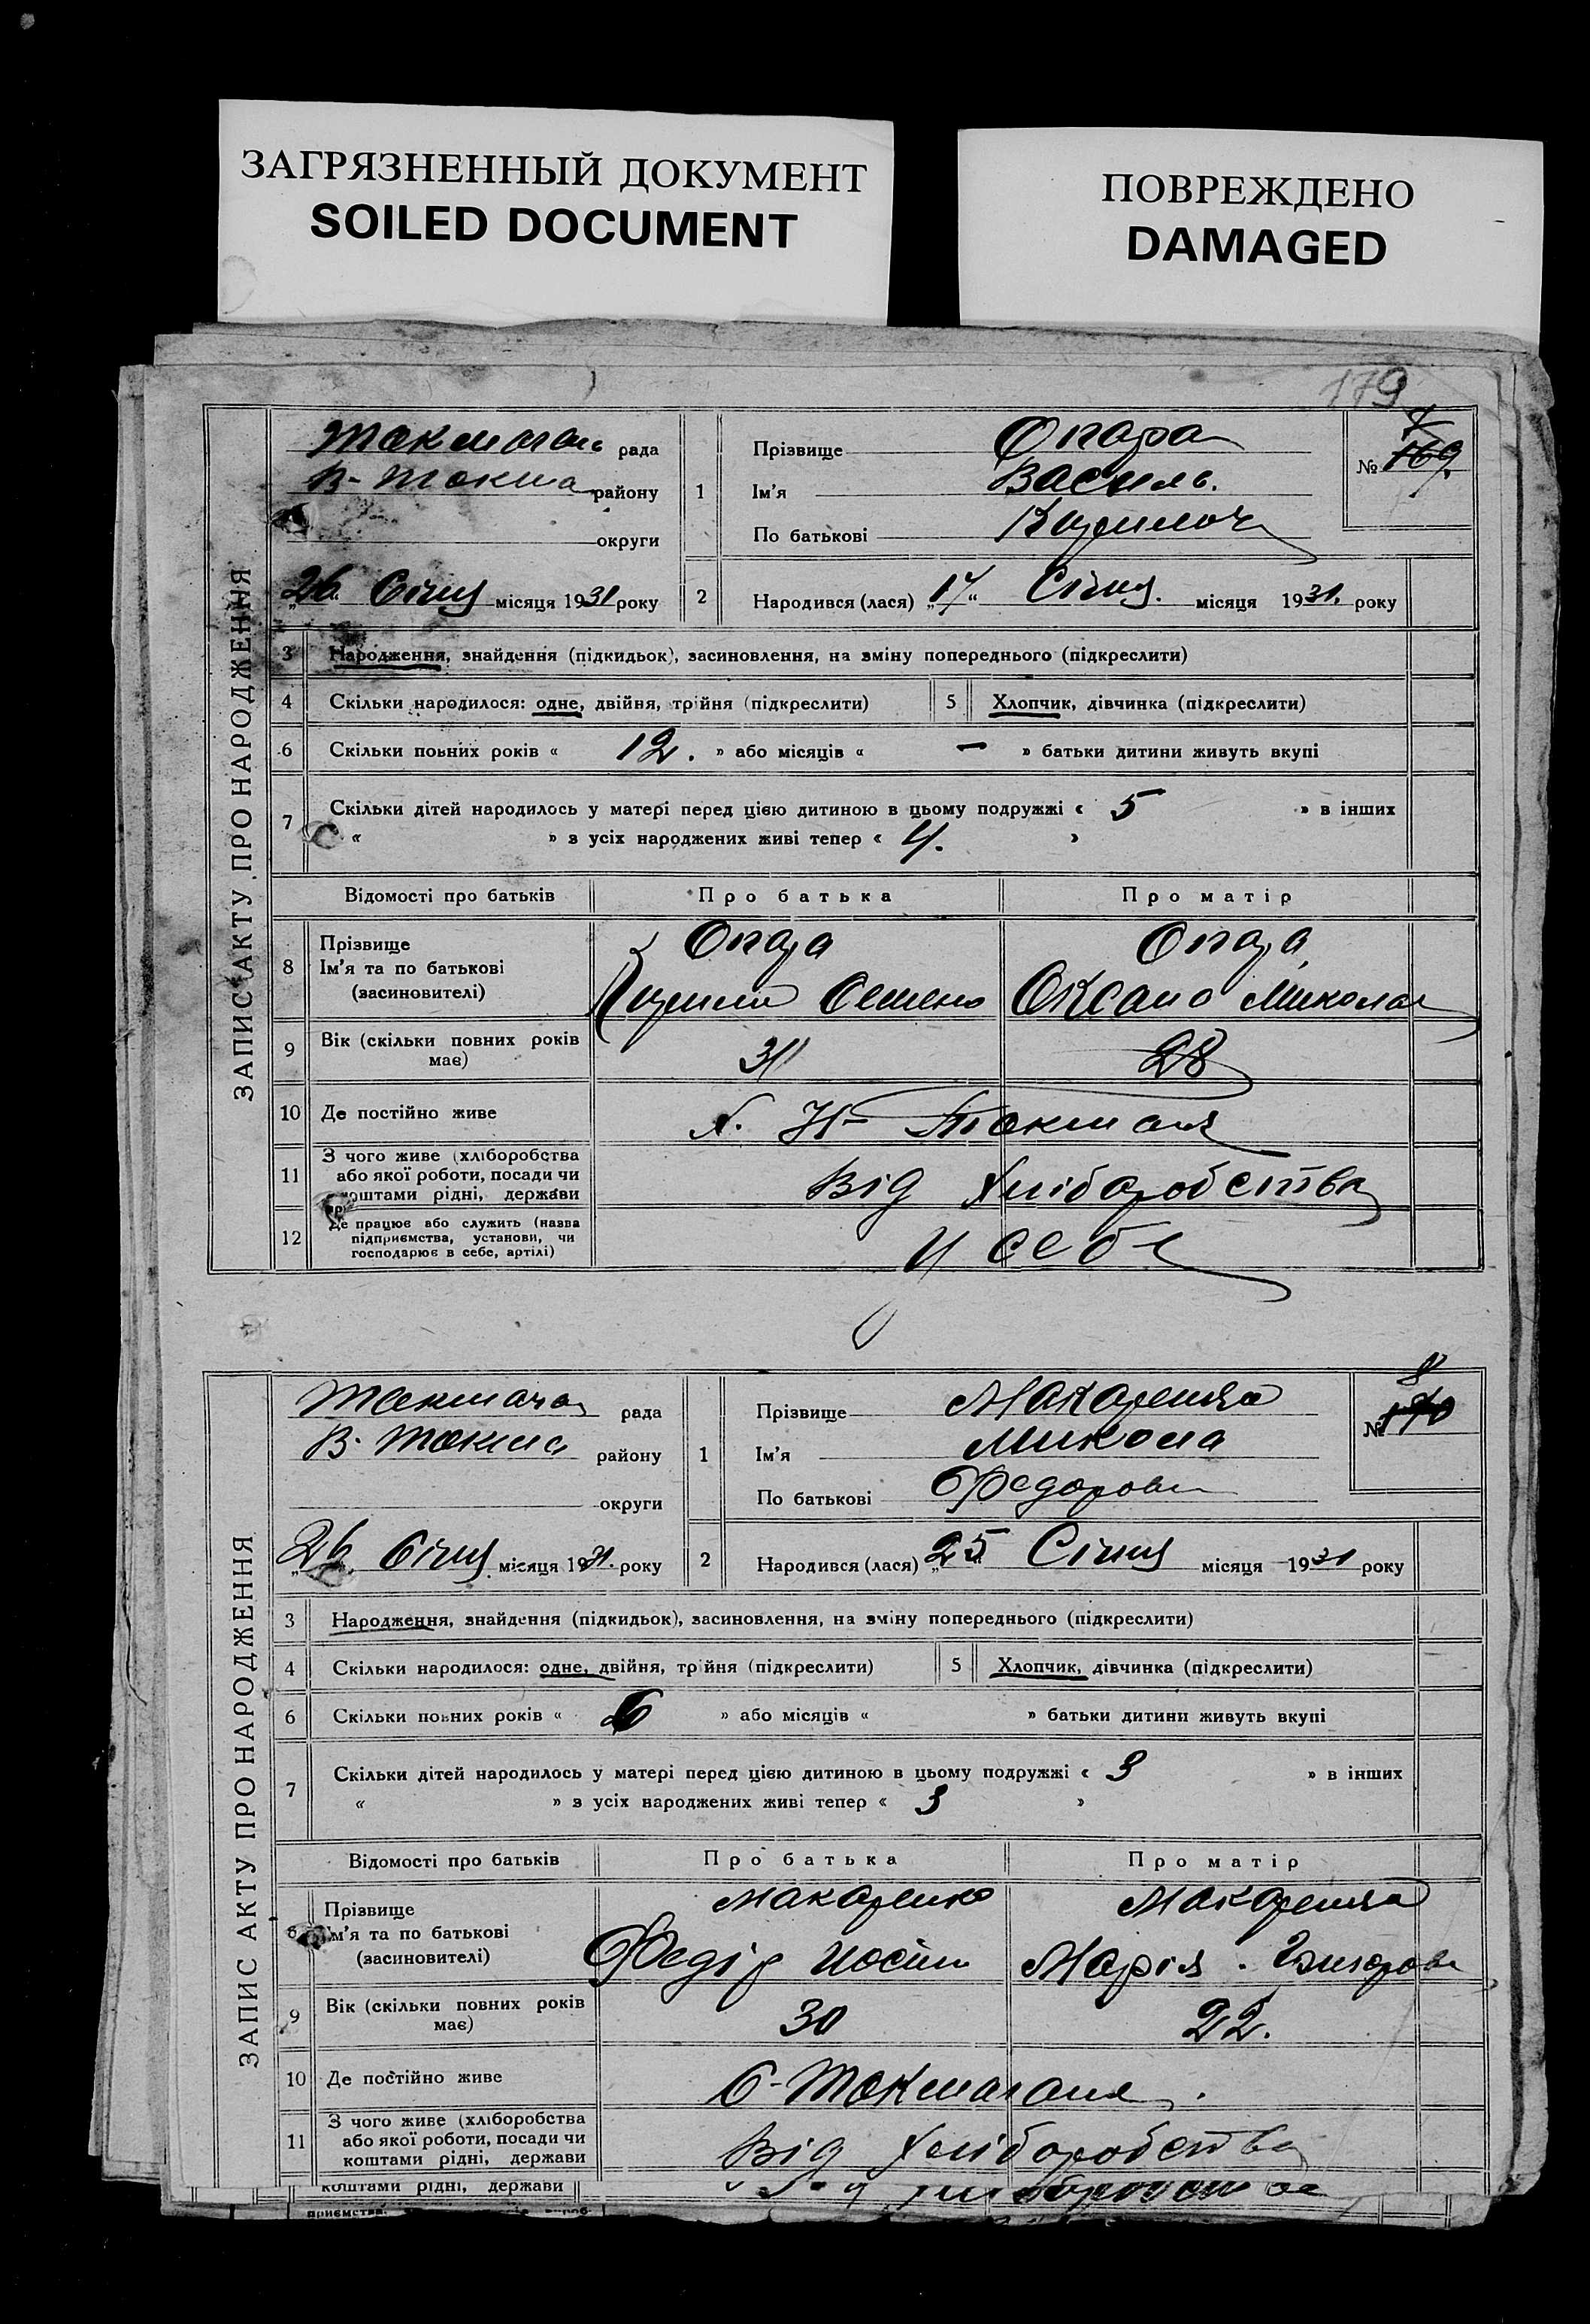 ЗАГРЯЗНЕННЫЙ ДОКУМЕНТ
SOILED DOCUMENT
ПОВРЕЖДЕНО
DAMAGED
179
ЗАПИС АКТУ ПРО НАРОДЖЕННЯ
рада
В-Токма району
округи
26 Січня місяця 1931 року
1 Прізвище Опара
Ім'я Василь.
По батькові Кирилов
№ 169.
2 Народився (лася) „17“ Січня. місяця 1931. року
3 Народження, знайдення (підкидьок), засиновлення, на зміну попереднього (підкреслити)
4 Скільки народилося: одне, двійня, трійня (підкреслити) 5 Хлопчик, дівчинка (підкреслити)
6 Скільки повних років « 12. » або місяців « — » батьки дитини живуть вкупі
7 Скільки дітей народилось у матері перед цією дитиною в цьому подружжі « 5 » в інших
« » з усіх народжених живі тепер « 4. »
Відомості про батьків Про батька Про матір
8 Прізвище Опара Опара
Ім'я та по батькові
(засиновителі) Кирило Семено Оксана Микола
9 Вік (скільки повних років має) 31 28
10 Де постійно живе
11 З чого живе (хліборобства
або якої роботи, посади чи
коштами рідні, держави Від хліборобства
12 Де працює або служить (назва
підприємства, установи, чи
господарює в себе, артілі) У себе
ЗАПИС АКТУ ПРО НАРОДЖЕННЯ
рада
В-Токма району
округи
26 Січня місяця 1931. року
1 Прізвище Макаренко
Ім'я Микола
По батькові Федорови
8
№ 170
2 Народився (лася) „25 Січня місяця 1931 року
3 Народження, знайдення (підкидьок), засиновлення, на зміну попереднього (підкреслити)
4 Скільки народилося: одне, двійня, трійня (підкреслити) 5 Хлопчик, дівчинка (підкреслити)
6 Скільки повних років « 6 » або місяців « » батьки дитини живуть вкупі
7 Скільки дітей народилось у матері перед цією дитиною в цьому подружжі « 3 » в інших
« » з усіх народжених живі тепер « 3 »
Відомості про батьків Про батька Про матір
8 Прізвище Макаренко Макаренко
Ім'я та по батькові
(засиновителі) Федір Йосип Марія
9 Вік (скільки повних років має) 30 22.
10 Де постійно живе
11 З чого живе (хліборобства
або якої роботи, посади чи
коштами рідні, держави Від хліборобства
коштами рідні, держави